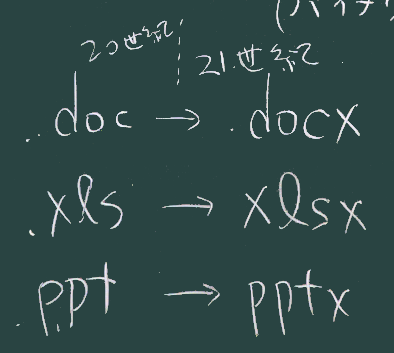 (バイナ
20世紀 21.世紀
.doc → .docx
.xls → xlsx
.ppt → pptx